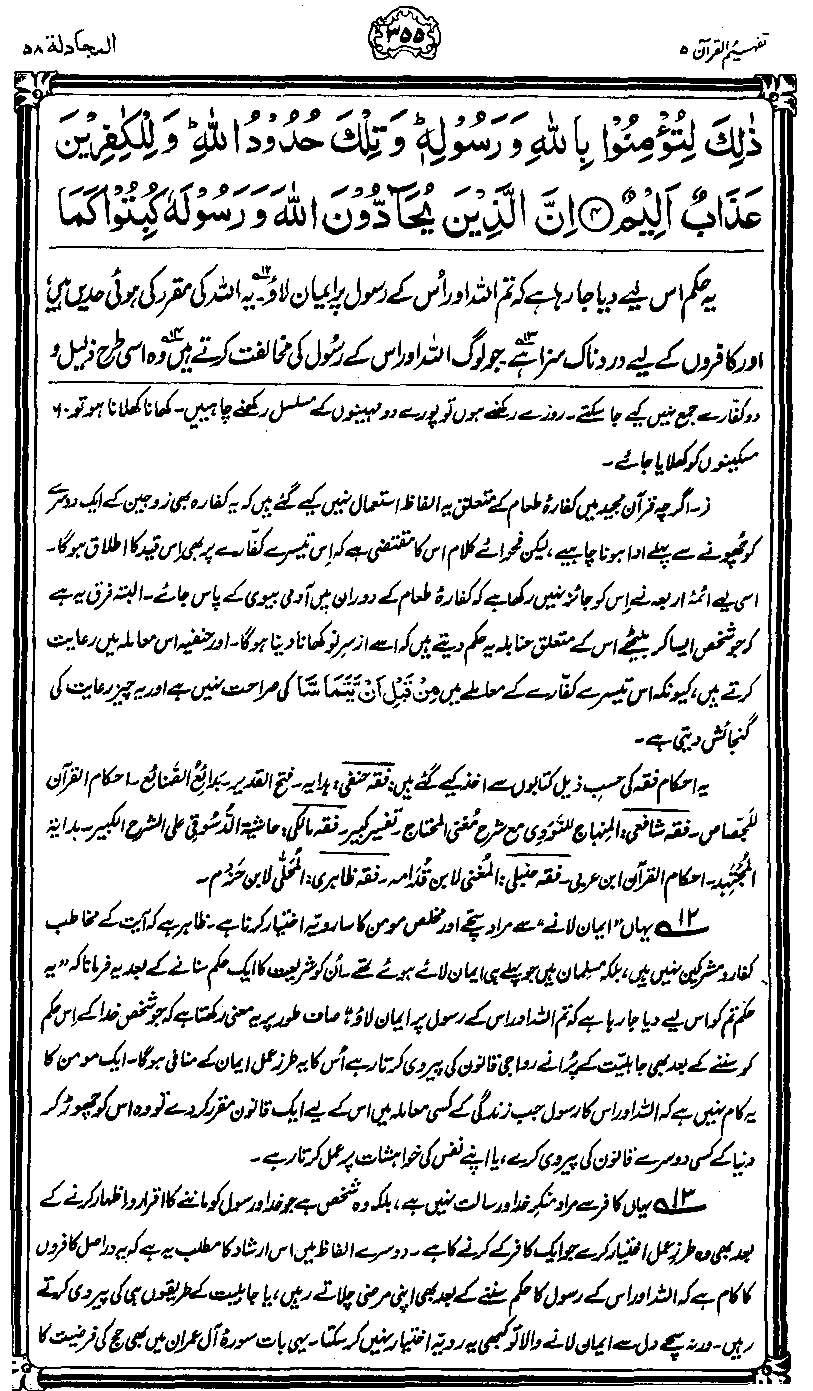 تفہیم القرآن ۵
۳۵۵
المجادلة ۵۸
ذٰلِكَ لِتُؤْمِنُوْا بِاللّٰهِ وَرَسُوْلِهٖ ؕ وَتِلْكَ حُدُوْدُ اللّٰهِ ؕ وَلِلْكٰفِرِيْنَ
عَذَابٌ اَلِيْمٌ ﴿۴﴾ اِنَّ الَّذِيْنَ يُحَآدُّوْنَ اللّٰهَ وَرَسُوْلَهٗ كُبِتُوْا كَمَا
یہ حکم اس لیے دیا جا رہا ہے کہ تم اللہ اور اُس کے رسول پر ایمان لاؤ۱۲۔ یہ اللہ کی مقرر کی ہوئی حدیں ہیں،
اور کافروں کے لیے دردناک سزا ہے۱۳۔ جو لوگ اللہ اور اس کے رسُول کی مخالفت کرتے ہیں۱۴ وہ اسی طرح ذلیل و
دو کفّارے جمع نہیں کیے جا سکتے۔ روزے رکھنے ہوں تو پورے دو مہینوں کے مسلسل رکھنے چاہییں۔ کھانا کھلانا ہو تو ۶۰
مسکینوں کو کھلایا جائے۔
ز۔ اگرچہ قرآن مجید میں کفارۂ طعام کے متعلق یہ الفاظ استعمال نہیں کیے گئے ہیں کہ یہ کفارہ بھی زوجین کے ایک دوسرے
کو چھُونے سے پہلے ادا ہونا چاہیے، لیکن فحوائے کلام اس کا مقتضی ہے کہ اِس تیسرے کفّارے پر بھی اِس قید کا اطلاق ہوگا۔
اسی لیے ائمۂ اربعہ نے اِس کو جائز نہیں رکھا ہے کہ کفارۂ طعام کے دوران میں آدمی بیوی کے پاس جائے۔ البتہ فرق یہ ہے
کہ جو شخص ایسا کر بیٹھے اس کے متعلق حنابلہ یہ حکم دیتے ہیں کہ اسے از سرِ نو کھانا دینا ہوگا۔ اور حنفیہ اس معاملہ میں رعایت
کرتے ہیں، کیونکہ اس تیسرے کفّارے کے معاملے میں مِنْ قَبْلِ اَنْ يَّتَمَاسَّا کی صراحت نہیں ہے اور یہ چیز رعایت کی
گنجائش دیتی ہے۔
یہ احکام فقہ کی حسب ذیل کتابوں سے اخذ کیے گئے ہیں: فقہ حنفی: ہدایہ۔ فتح القدیر۔ بدائع الصَّنائع۔ احکام القرآن
للجَصّاص۔ فقہ شافعی: المنہاج للنَّوَوِی مع شرح مُغنی المحتاج۔ تفسیر کبیر۔ فقہ مالکی: حاشیۃ الدُّسوقی علی الشرح الکبیر۔ بدایۃ
المُجتہد۔ احکام القرآن ابن عربی۔ فقہ حنبلی: المُغنی لابن قُدَامہ۔ فقہ ظاہری: المُحلّٰی لابن حَزم۔
۱۲ یہاں ”ایمان لانے“ سے مراد سچے اور مخلص مومن کا سا رویّہ اختیار کرنا ہے۔ ظاہر ہے کہ آیت کے مخاطب
کفار و مشرکین نہیں ہیں، بلکہ مسلمان ہیں جو پہلے ہی ایمان لائے ہوئے تھے۔ اُن کو شریعت کا ایک حکم سنانے کے بعد یہ فرمانا کہ ”یہ
حکم تم کو اس لیے دیا جا رہا ہے کہ تم اللہ اور اس کے رسول پر ایمان لاؤ“ صاف طور پر یہ معنی رکھتا ہے کہ جو شخص خدا کے اِس حکم
کو سننے کے بعد بھی جاہلیّت کے پُرانے رواجی قانون کی پیروی کرتا رہے اُس کا یہ طرزِ عمل ایمان کے منافی ہوگا۔ ایک مومن کا
یہ کام نہیں ہے کہ اللہ اور اُس کا رسول جب زندگی کے کسی معاملہ میں اس کے لیے ایک قانون مقرر کر دے تو وہ اس کو چھوڑ کر
دنیا کے کسی دوسرے قانون کی پیروی کرے، یا اپنے نفس کی خواہشات پر عمل کرتا رہے۔
۱۳ یہاں کافر سے مراد منکرِ خدا و رسالت نہیں ہے، بلکہ وہ شخص ہے جو خدا و رسول کو ماننے کا اقرار و اظہار کرنے کے
بعد بھی وہ طرزِ عمل اختیار کرے جو ایک کافر کے کرنے کا ہے۔ دوسرے الفاظ میں اس ارشاد کا مطلب یہ ہے کہ یہ دراصل کافروں
کا کام ہے کہ اللہ اور اس کے رسول کا حکم سننے کے بعد بھی اپنی مرضی چلاتے رہیں، یا جاہلیت کے طریقوں ہی کی پیروی کرتے
رہیں۔ ورنہ سچے دل سے ایمان لانے والا تو کبھی یہ رویہ اختیار نہیں کر سکتا۔ یہی بات سورۂ آل عمران میں بھی حج کی فرضیت کا